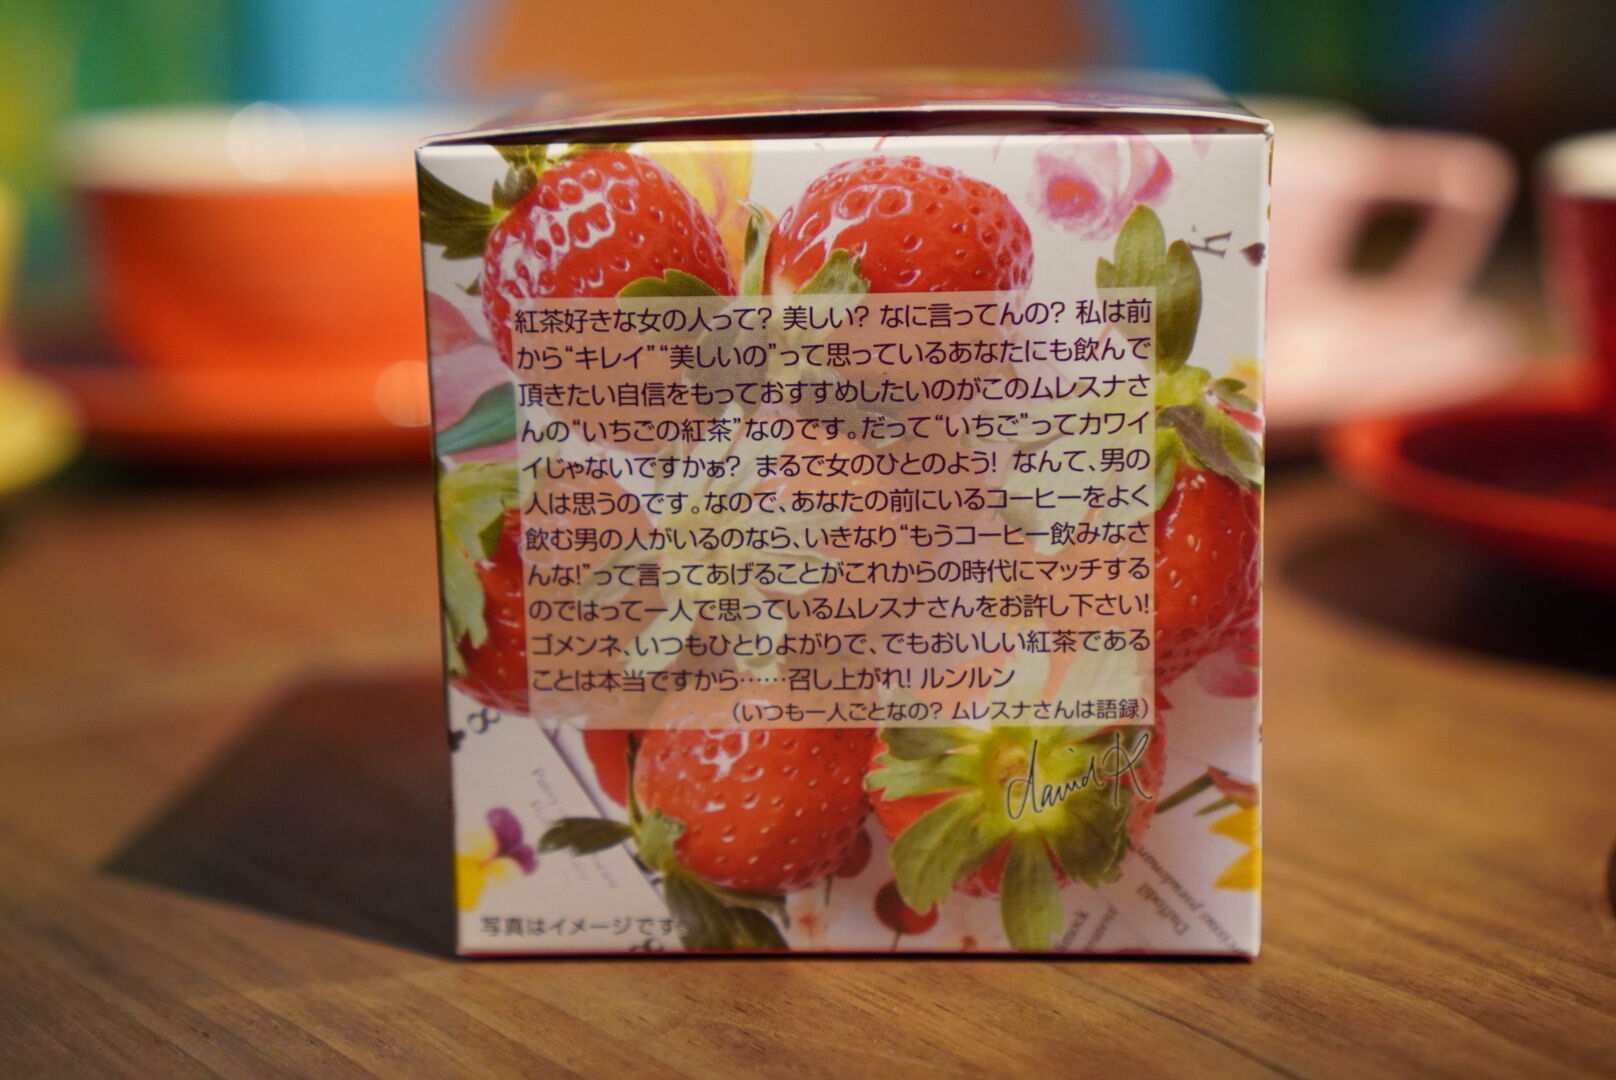 紅茶好きな女の人って? 美しい? なに言ってんの? 私は前
から“キレイ”“美しいの”って思っているあなたにも飲んで
頂きたい自信をもっておすすめしたいのがこのムレスナさ
んの“いちごの紅茶”なのです。だって“いちご”ってカワイ
イじゃないですかぁ? まるで女のひとのよう! なんて、男の
人は思うのです。なので、あなたの前にいるコーヒーをよく
飲む男の人がいるのなら、いきなり“もうコーヒー飲みなさ
んな!”って言ってあげることがこれからの時代にマッチする
のではって一人で思っているムレスナさんをお許し下さい!
ゴメンネ、いつもひとりよがりで、でもおいしい紅茶である
ことは本当ですから……召し上がれ! ルンルン
(いつも一人ごとなの? ムレスナさんは語録)
david K
写真はイメージです。
k
8
Daffodil